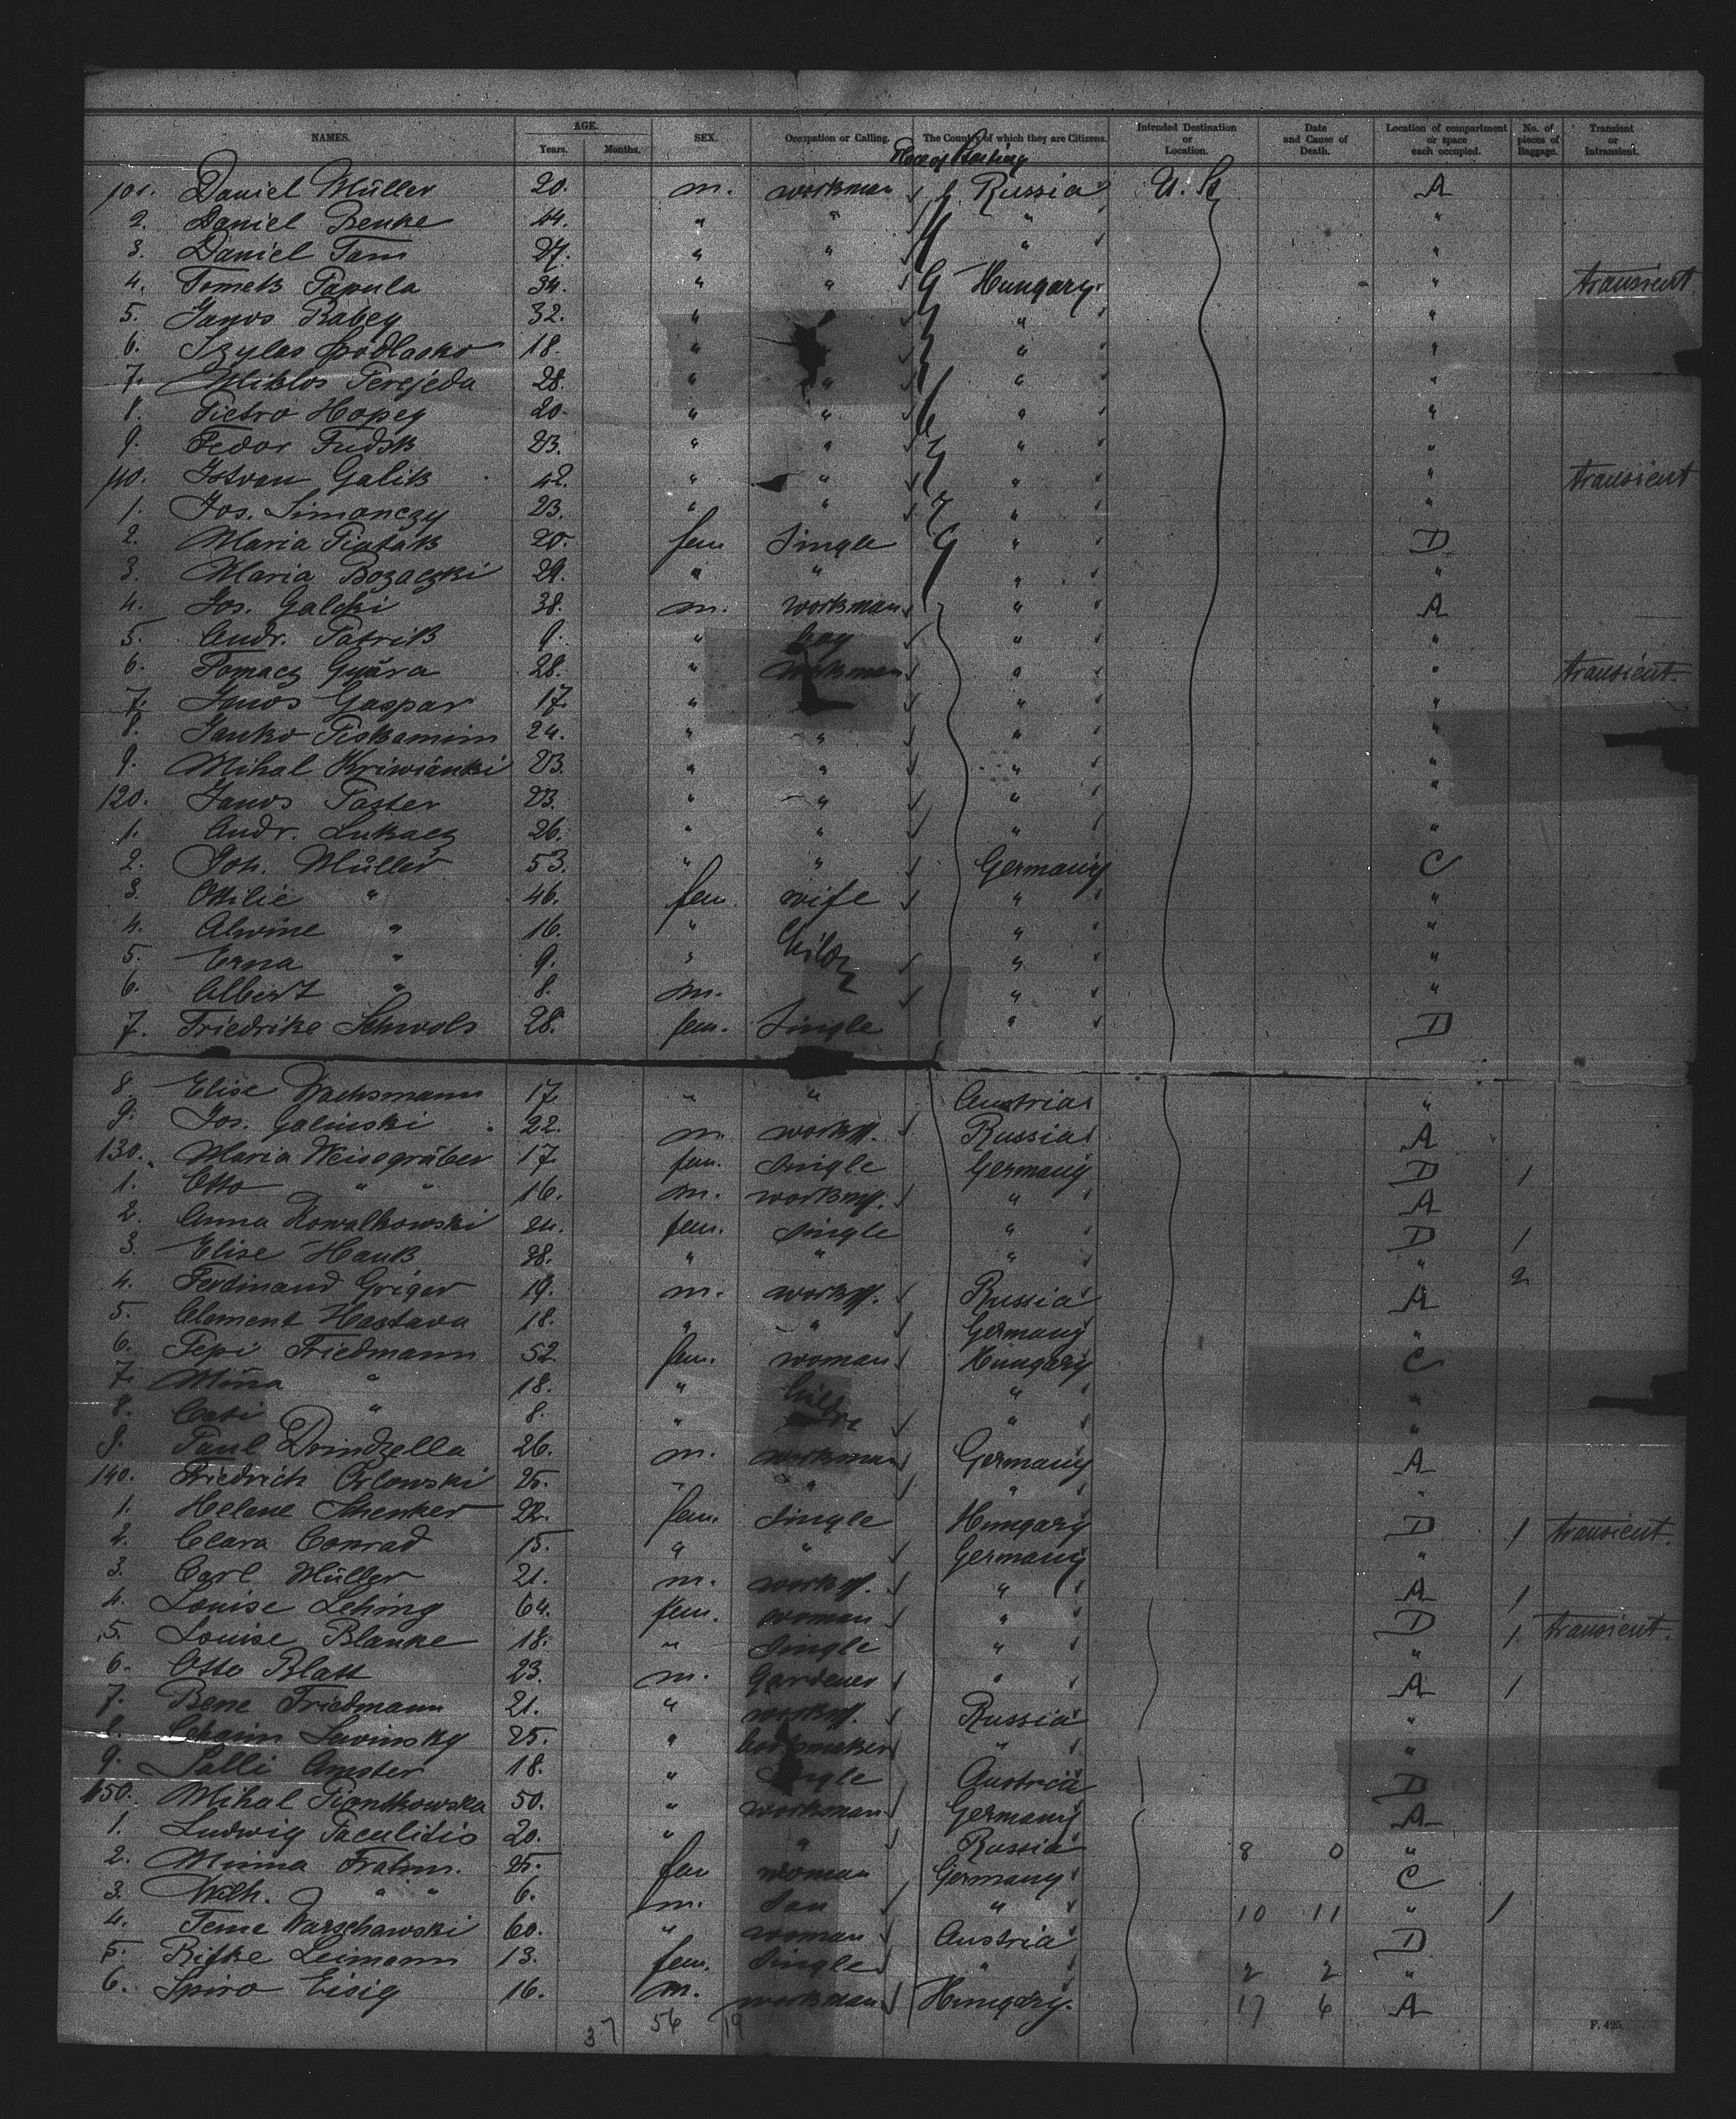 NAMES. AGE. Years. Months. SEX. Occupation or Calling. The Country of which they are Citizens. Intended Destination or Location. Date and Cause of Death. Location of compartment or space each occupied. No. of pieces of Baggage. Transient or Intransient.
101. Daniel Müller 20. m. workman Russia U. S. A
2. Daniel Benke 44. " " " "
3. Daniel Tam 27. " " " "
4. Tomek Papula 34. " " Hungary. " transient
5. Janos Rabey 32. " " "
6. 18. " " "
7. Miklos Terejeda 28. " " " "
8. Pietro Hopey 20. " " " "
9. Fedor Fudik 23. " " " "
110. Istvan Galik 42. " " " " transient
1. Jos. Simonczy 23. " " " "
2. Maria Piatak 20. fem Single " D
3. Maria Bozaczki 29. " " " "
4. Jos. Galcki 38. m. workman " A
5. Andr. Patrik 9. " boy " "
6. Tomacz Gyura 28. " workman " " transient.
7. Janos Gaspar 17. " " "
8. Janko 24. " " " "
9. Mihal Kriwianki 23. " " " "
120. Janos Paster 23. " " " "
1. Andr. Lukacz 26. " " " "
2. Joh. Müller 53. " " Germany C
3. Ottilie " 46. fem. wife " "
4. Alwine " 16. " Childr " "
5. Erna " 9. " " "
6. Albert " 8. m. " "
7. Friedrike Schwols 28. fem. Single " D
8. Elise Wachsmann 17. " " Austria "
9. Jos. Galinski 22. m. workm. Russia A
130. Maria Weisegräber 17. fem. Single Germany D 1
1. Otto " " 16. m. workm. " A
2. Anna Kowalkowski 24. fem. Single " D 1
3. Elise Hauk 38. " " " " 2
4. Ferdinand Griger 19. m. workm. Russia A
5. Clement Hastava 18. " " Germany "
6. Pepi Friedmann 52 fem. woman Hungary C
7. Mina " 18. " Childre " "
8. Cati " 8. " " "
9. Paul Drindzella 26. m. workman Germany A
140. Friedrich Orlowski 25. " " " "
1. Helene Schenker 22. fem. Single Hungary D 1 transient.
2. Clara Conrad 15. " " Germany "
3. Carl Müller 21. m. workm. " A 1
4. Louise Lehing 64. fem. woman " D transient.
5. Louise Blanke 18. " Single " " 1
6. Otto Blatt 23. m. Gardener " A 1
7. Bene Friedmann 21. " workm. Russia "
8. Chaim Lewinsky 25. " " "
9. Salli Anster 18. " Single Austria D
150. Mihal Piontkowska 50. " workman Germany A
1. Ludwig Paculitis 20. " " Russia 8 0 "
2. Minna Frahm. 25. fem woman Germany C
3. Wilh. " " 6. m. Son " 10 11 " 1
4. Teme Warschawski 60. " woman Austria D
5. Rifke Leimann 13. fem. Single " 2 2 "
6. Spiro Eisig 16. m. workman Hungary. 17 6 A
37 56 19
F. 425.